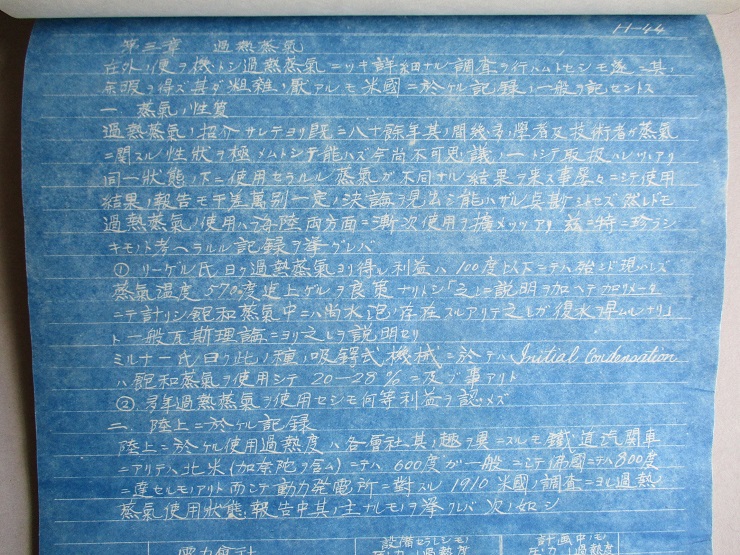 11-44
第三章 過熱蒸氣
在外ノ便ヲ機トシ過熱蒸氣ニツキ詳細ナル調査ヲ行ハムトセシモ遂ニ其ノ
余暇ヲ得ズ甚ダ粗雑ノ厭アルモ米國ニ於ケル記録ノ一般ヲ記セントス
一 蒸氣ノ性質
過熱蒸氣ノ紹介サレテヨリ既ニ八十餘年其ノ間幾多ノ學者及技術者ガ蒸氣
ニ関スル性狀ヲ極メムトシテ能ハズ今尚不可思議ノ一トシテ取扱ハレツヽアリ
同一狀態ノ下ニ使用セラルル蒸氣ガ不同ナル結果ヲ來ス事屡々ニシテ使用
結果ノ報告モ千差萬別一定ノ決論ヲ見出シ能ハザル
過熱蒸氣ノ使用ハ海陸両方面ニ漸次使用ヲ擴メツツアリ茲ニ特ニ珍ラシ
キモノト考ヘラルル記録ヲ挙グレバ
① リーケル氏曰ク過熱蒸氣ヨリ得ル利益ハ100度以下ニテハ殆ンド現ハレズ
蒸氣温度570度迄上ゲルヲ良策ナリトシ之レニ説明ヲ加ヘテカロリメーター
ニテ計リシ飽和蒸氣中ニハ尚水泡ノ存在スルアリテ之レガ復水
ト一般瓦斯理論ニヨリ之レヲ説明セリ
ミルナー氏曰ク此ノ種ノ吸鍔式機械ニ於テハ Initial Condensation
ハ飽和蒸氣ヲ使用シテ 20—28%ニ及ブ事アリト
② 多年過熱蒸氣ヲ使用セシモ何等利益ヲ認メズ
二 陸上ニ於ケル記録
陸上ニ於ケル使用過熱度ハ各會社其ノ趣ヲ異ニスルモ鐵道汽関車
ニアリテハ北米(加奈陀ヲ含ム)ニテハ 600度ガ一般ニシテ佛國ニテハ800度
ニ達セルモノアリト而シテ動力発電所ニ對スル 1910 米國ノ調査ニヨレバ過熱
蒸氣使用狀態ノ報告中其ノ主ナルモノヲ挙グレバ次ノ如シ
電力會社 設備セラレシモノ 計画中ノモノ
圧力 過熱度 圧力 過熱度